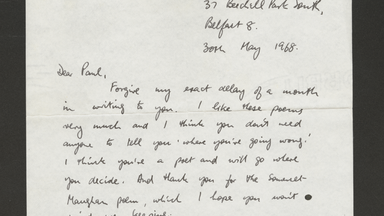 37 Beechill Park South,
Belfast 8.
30th May 1968.
Dear Paul,
Forgive my exact delay of a month
in writing to you. I like these poems
very much and I think you don't need
anyone to tell you 'where you're going wrong.'
I think you're a poet and will go where
you decide. And thank you for the Somerset-
Maugham poem, which I hope you won't